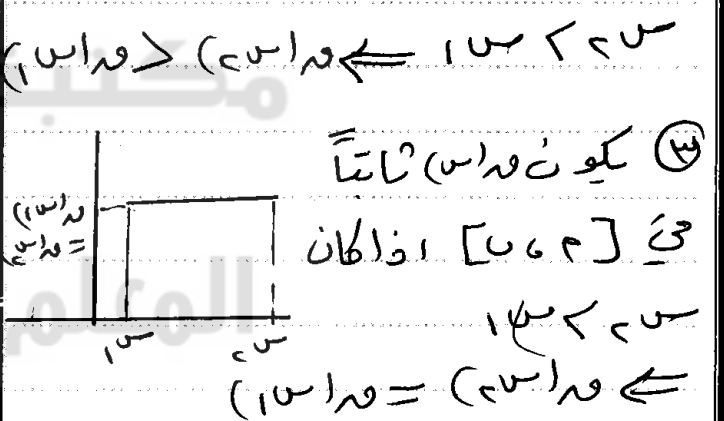 س٢ > س١ ⇐ ق(س٢) < ق(س١)
٣ يكون ق(س) ثابتاً
في [٢، ب] اذا كان
س٢ > س١
⇐ ق(س٢) = ق(س١)
ق(س١)
= ق(س٢)
س١ س٢
المعلم